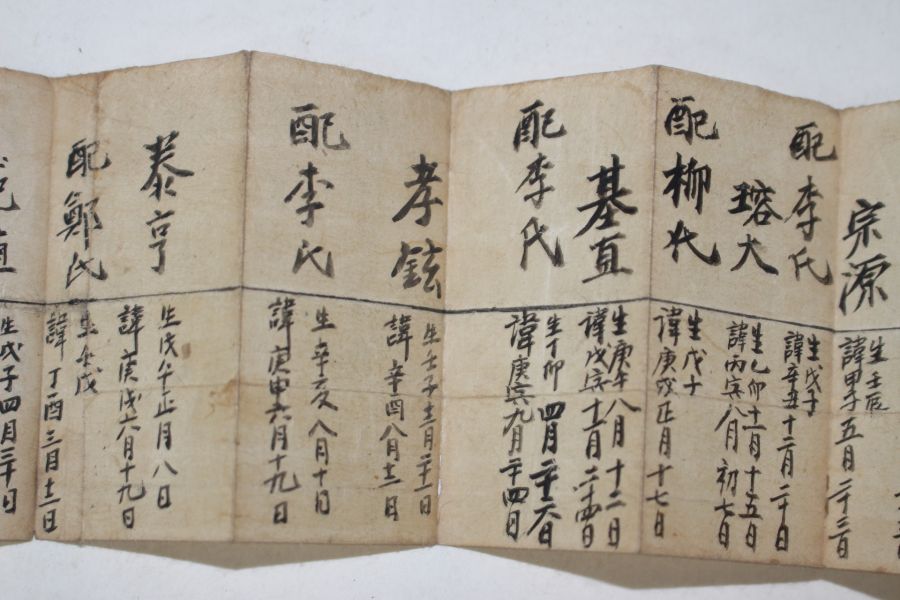 宗源
生壬辰
諱甲子五月二十三日
配李氏
生戊子
諱辛丑十二月二十日
瑢大
生乙卯十二月十五日
諱丙寅八月初七日
配柳氏
生戊子
諱庚戌正月十七日
基直
生庚午八月十二日
諱戊寅十二月二十四日
配李氏
生丁卯四月二十六日
諱庚寅九月二十四日
孝鉉
生壬子十二月二十一日
諱辛酉八月十二日
配李氏
生辛亥八月十日
諱庚申六月十九日
泰亨
生戊午正月八日
諱庚戌六月十九日
配鄭氏
生壬戌
諱丁酉三月十二日
直
生戊子四月三十日